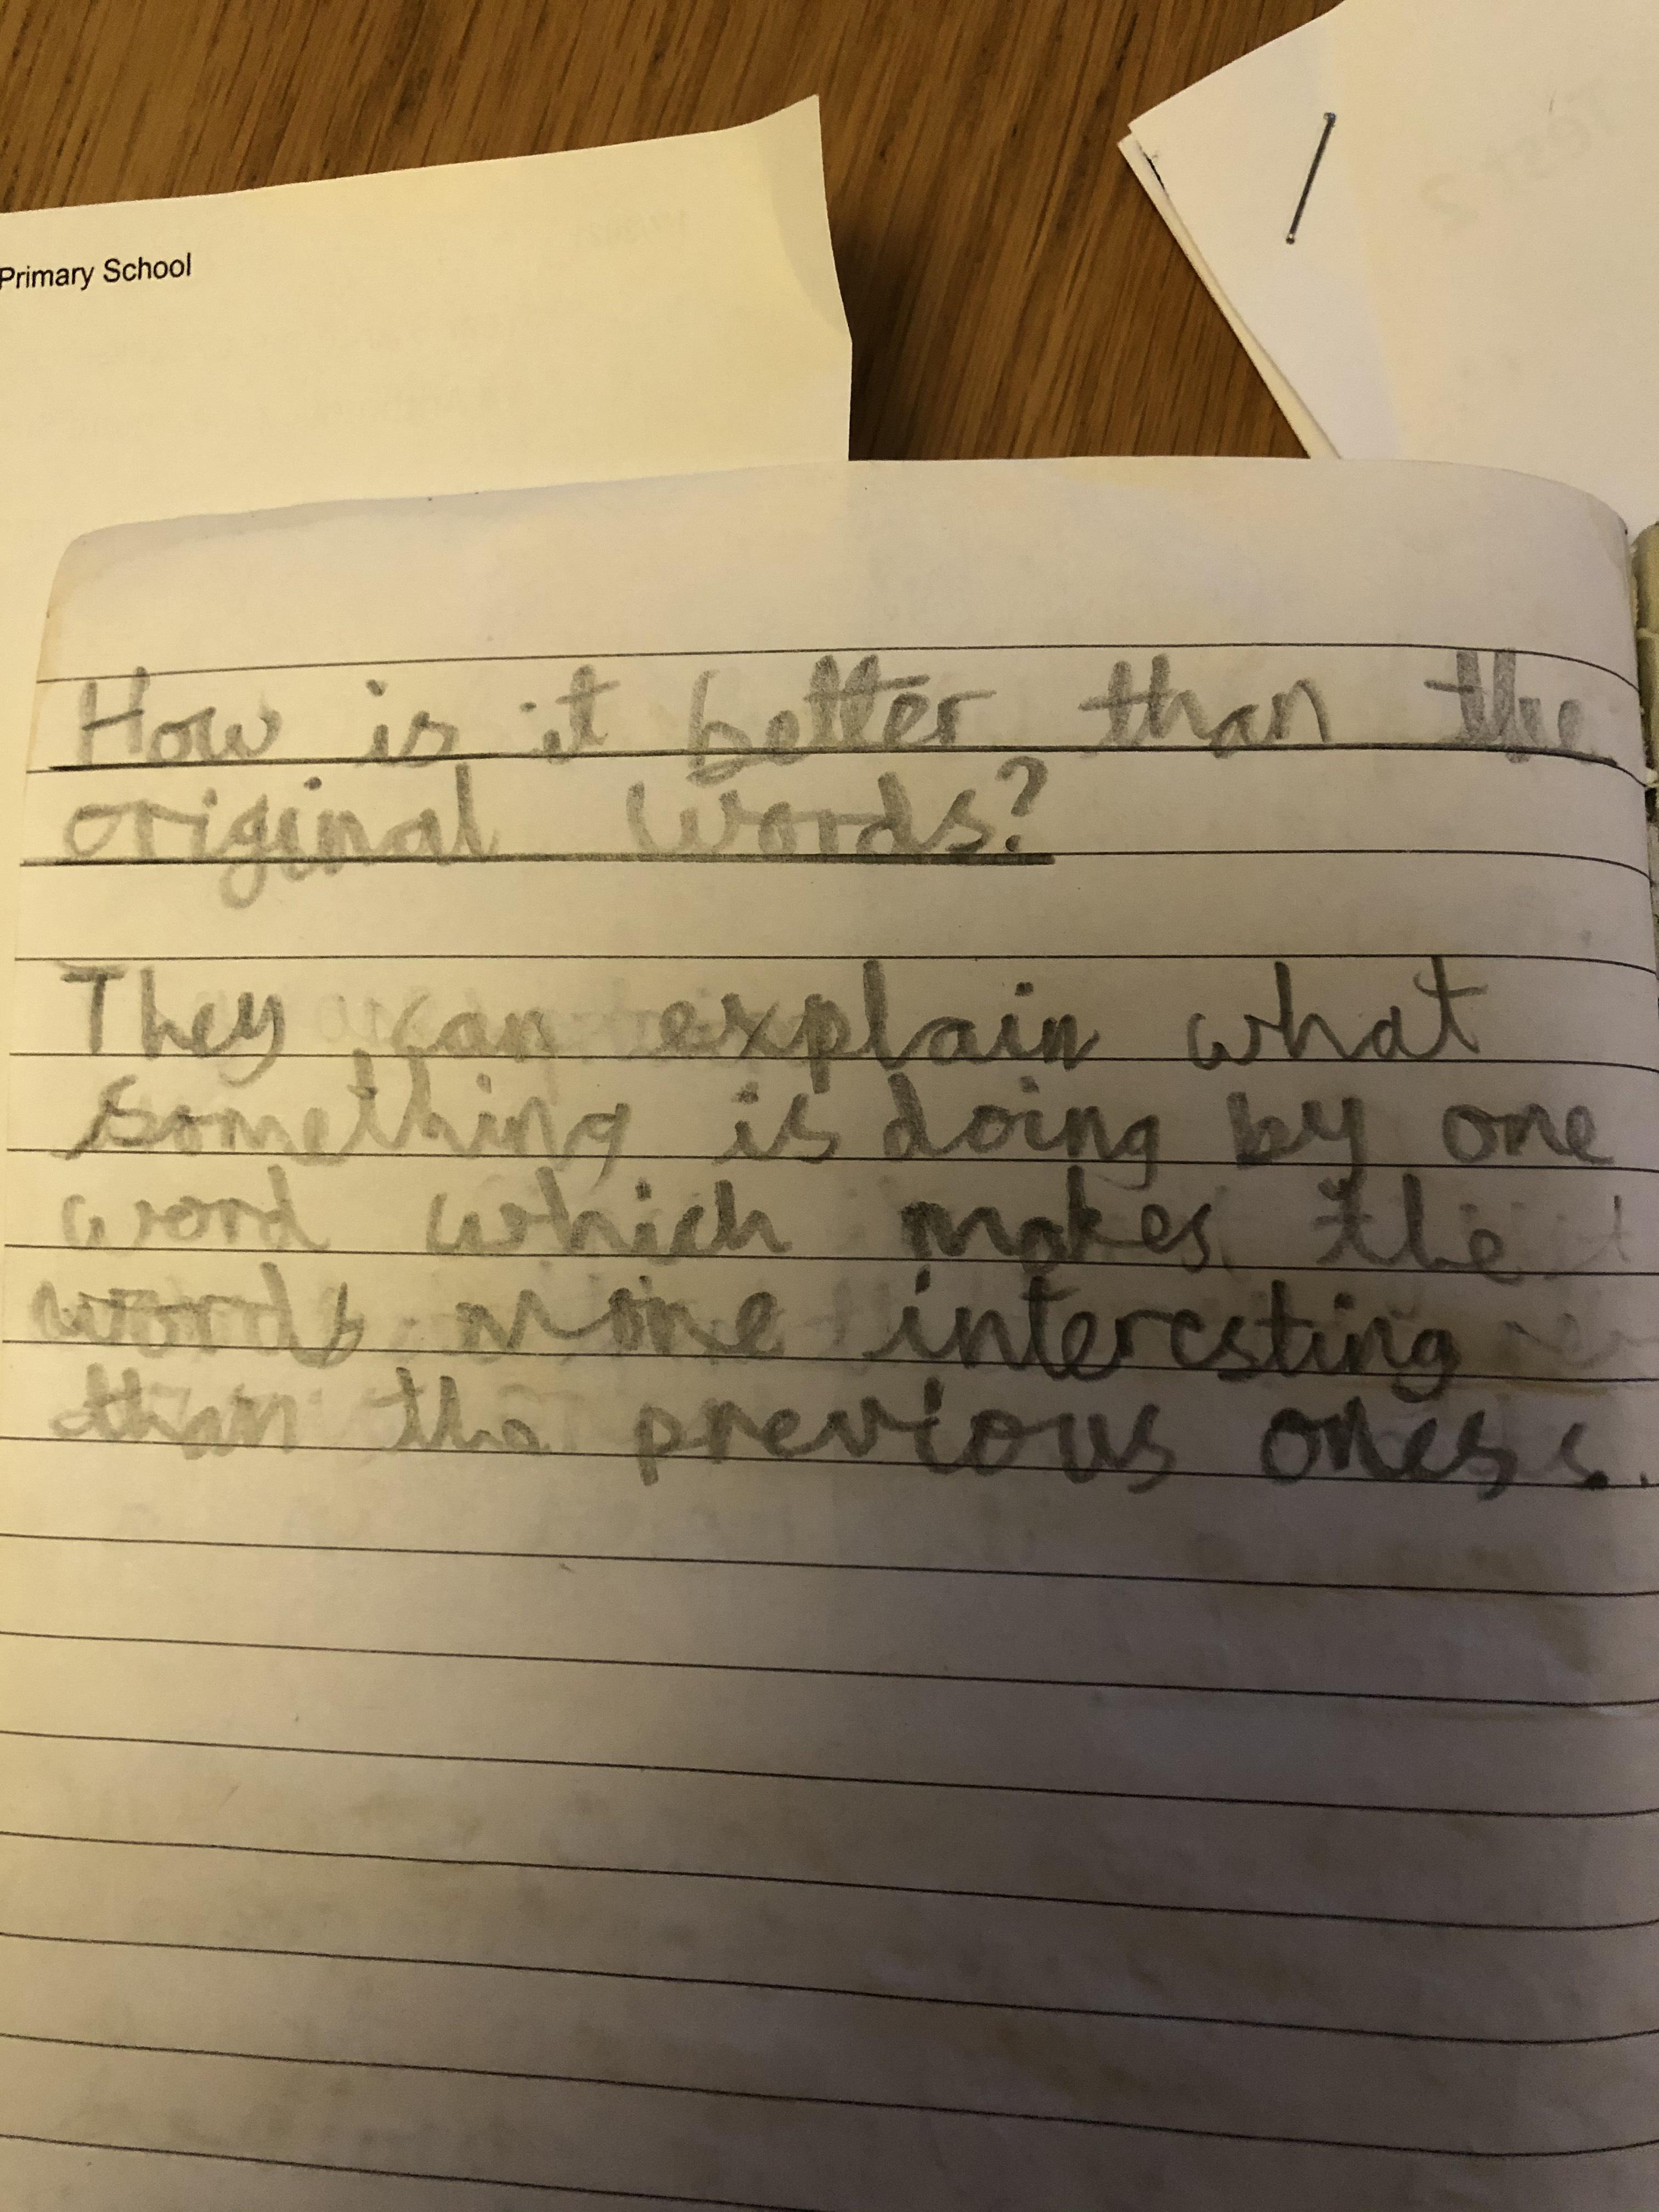 Primary School
How is it better than the
original words?
They can explain what
something is doing by one
word which makes the
words more interesting
than the previous ones.